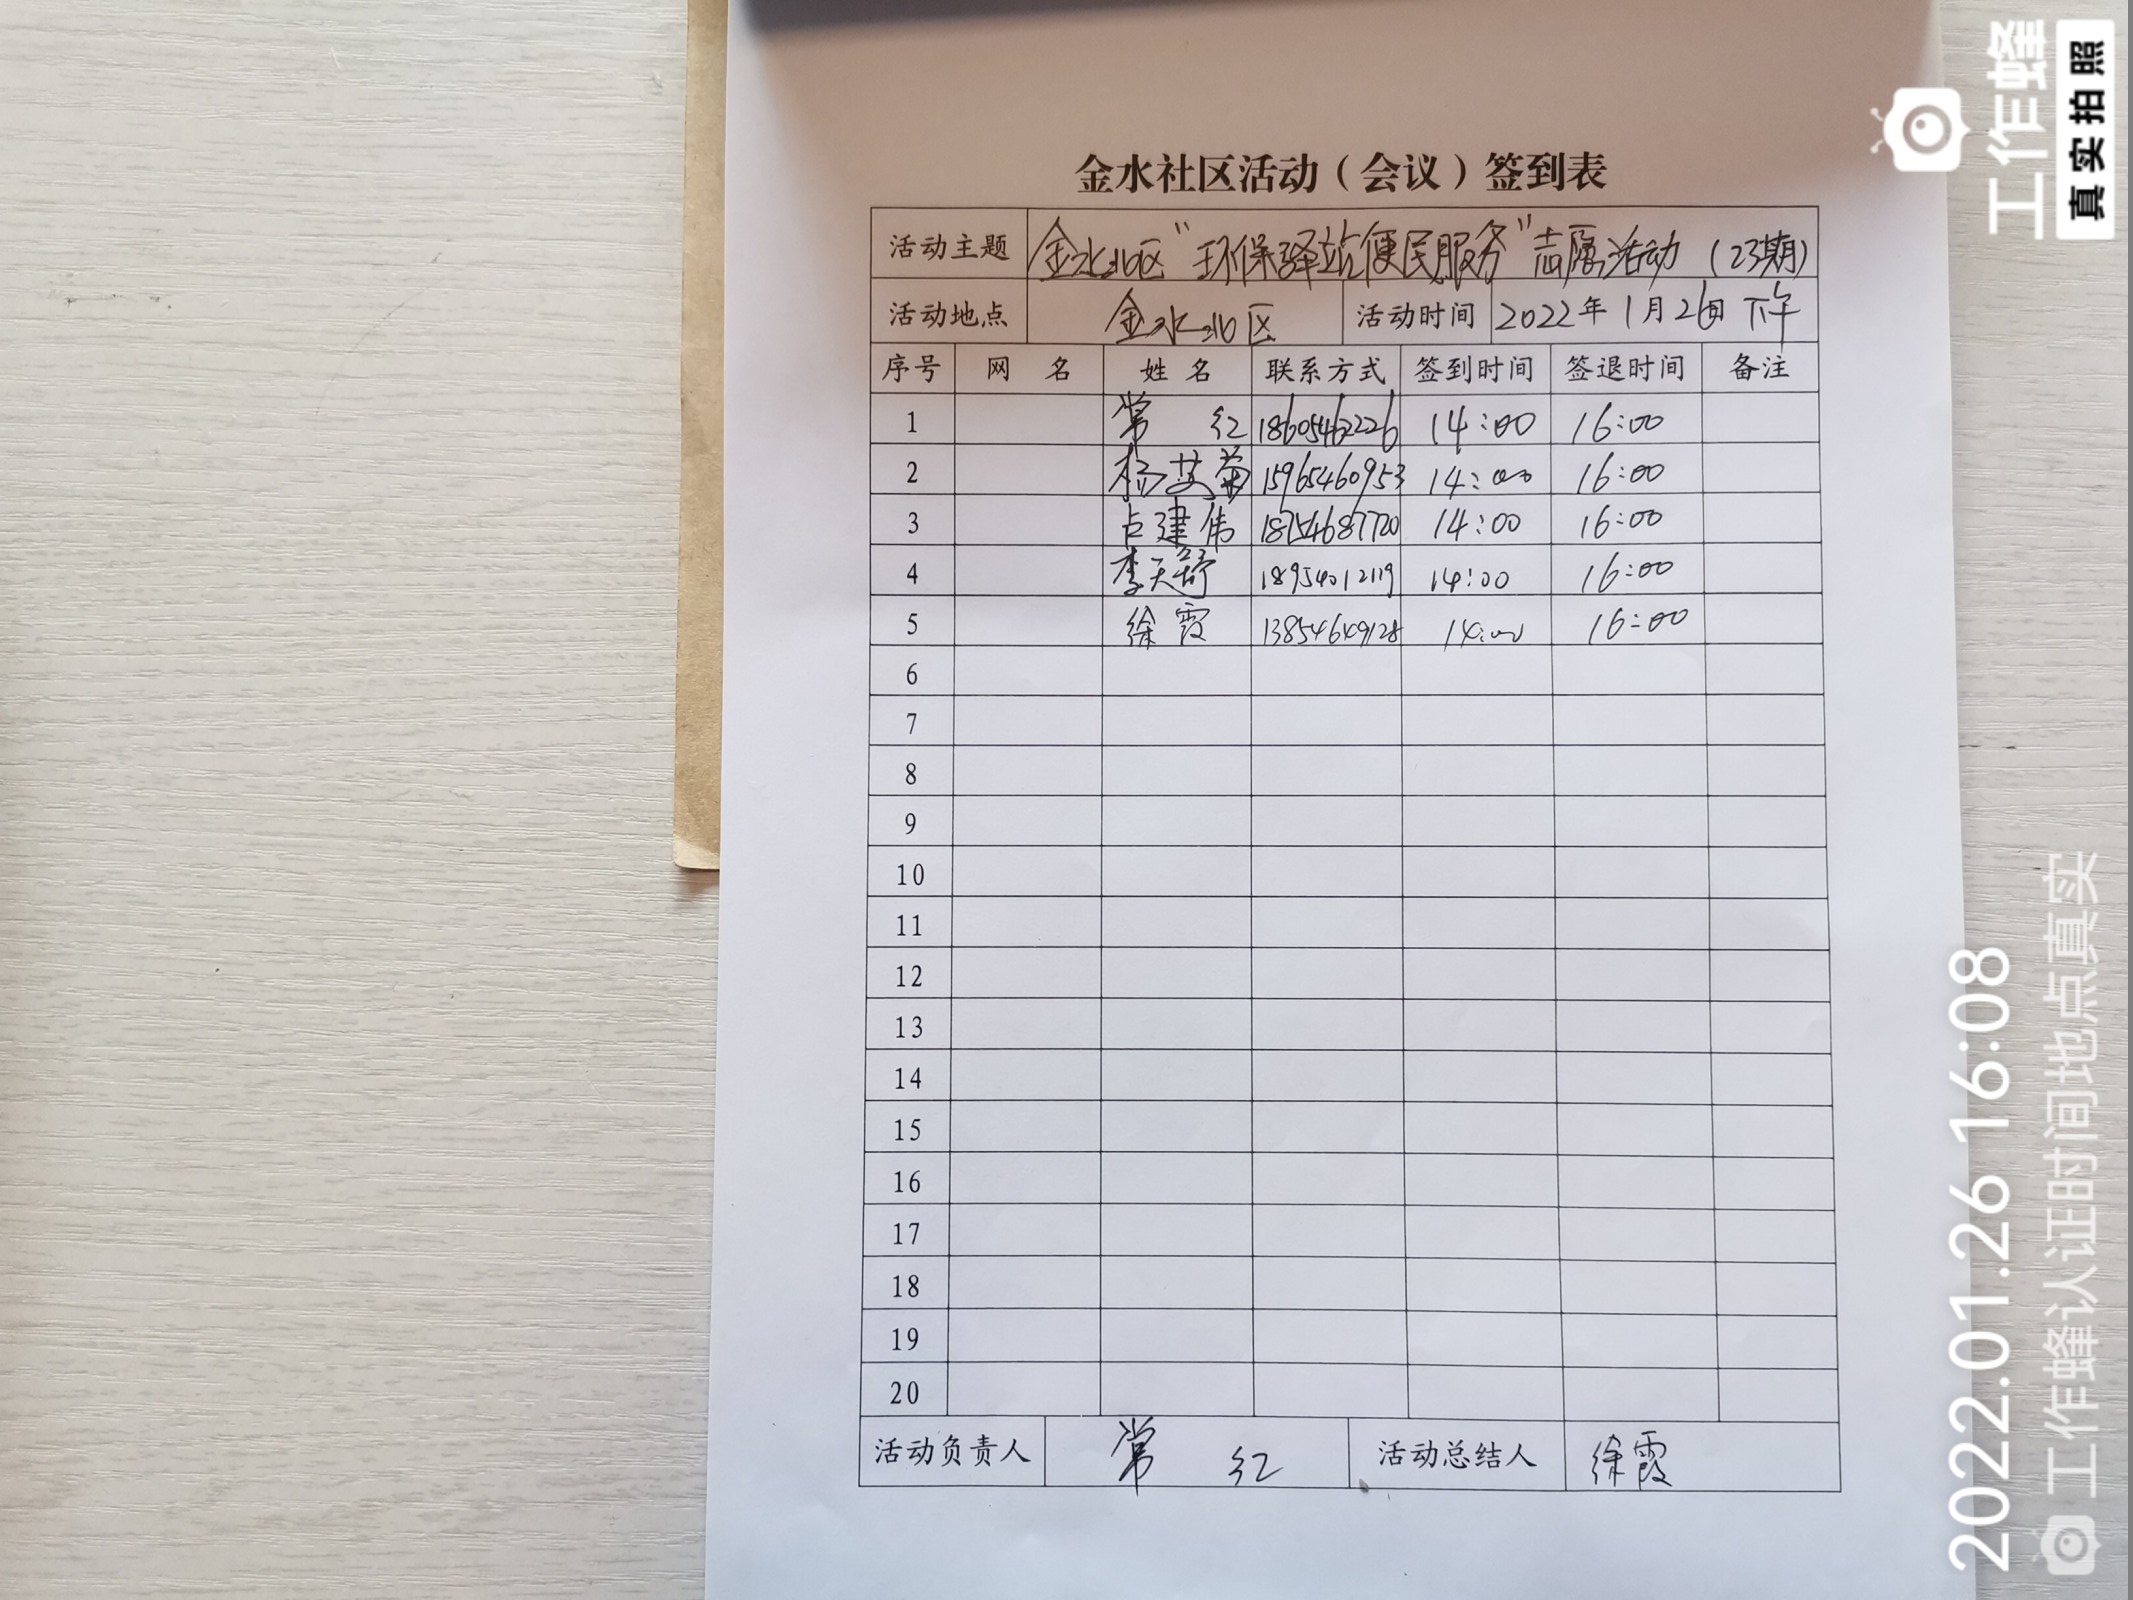 金水社区活动（会议）签到表
活动主题 金水北区“环保驿站便民服务”志愿活动（23期）
活动地点 金水北区 活动时间 2022年1月26日 下午
序号 网 名 姓 名 联系方式 签到时间 签退时间 备注
1 常 红 18605462226 14:00 16:00
2 杨艾菊 15965460953 14:00 16:00
3 占建伟 18754687720 14:00 16:00
4 李天舒 18954012119 14:00 16:00
5 徐霞 13854649128 14:00 16:00
6
7
8
9
10
11
12
13
14
15
16
17
18
19
20
活动负责人 常 红 活动总结人 徐霞
工作蜂
真实拍照
2022.01.26 16:08
工作蜂认证时间地点真实